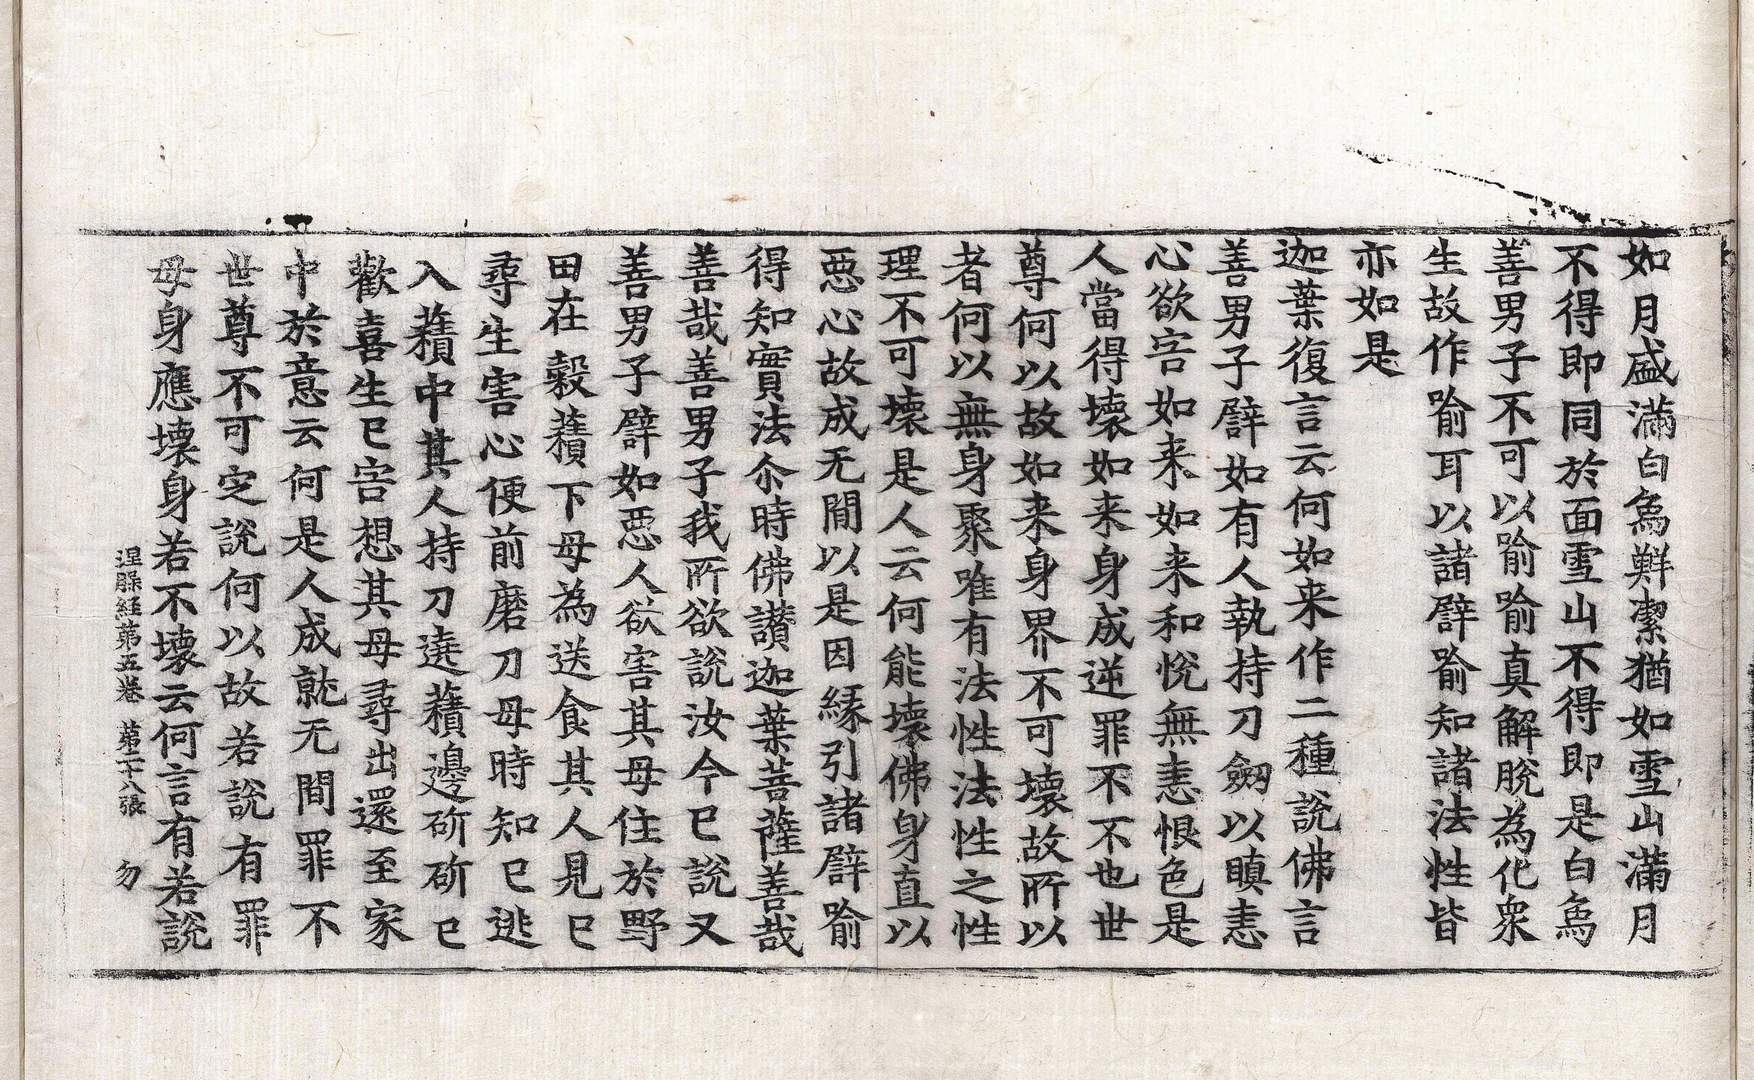 如月盛滿白鳥鮮潔猶如雪山滿月
不得即同於面雪山不得即是白鳥
善男子不可以喻喻真解脫為化衆
生故作喻耳以諸譬喻知諸法性皆
亦如是
迦葉復言云何如来作二種說佛言
善男子譬如有人執持刀劒以瞋恚
心欲害如来如来和恱無恚恨色是
人當得壞如来身成逆罪不不也世
尊何以故如来身界不可壞故所以
者何以無身聚唯有法性法性之性
理不可壞是人云何能壞佛身直以
惡心故成无間以是因緣引諸譬喻
得知實法尒時佛讃迦葉菩薩善哉
善哉善男子我所欲說汝今已說又
善男子譬如惡人欲害其母住於野
田在穀䕆下母為送食其人見已
尋生害心便前磨刀母時知已逃
入䕆中其人持刀遶䕆邊斫斫已
歡喜生已害想其母尋出還至家
中於意云何是人成就无間罪不
世尊不可定說何以故若說有罪
母身應壞身若不壞云何言有若說
涅槃經第五卷 第二十八張 勿